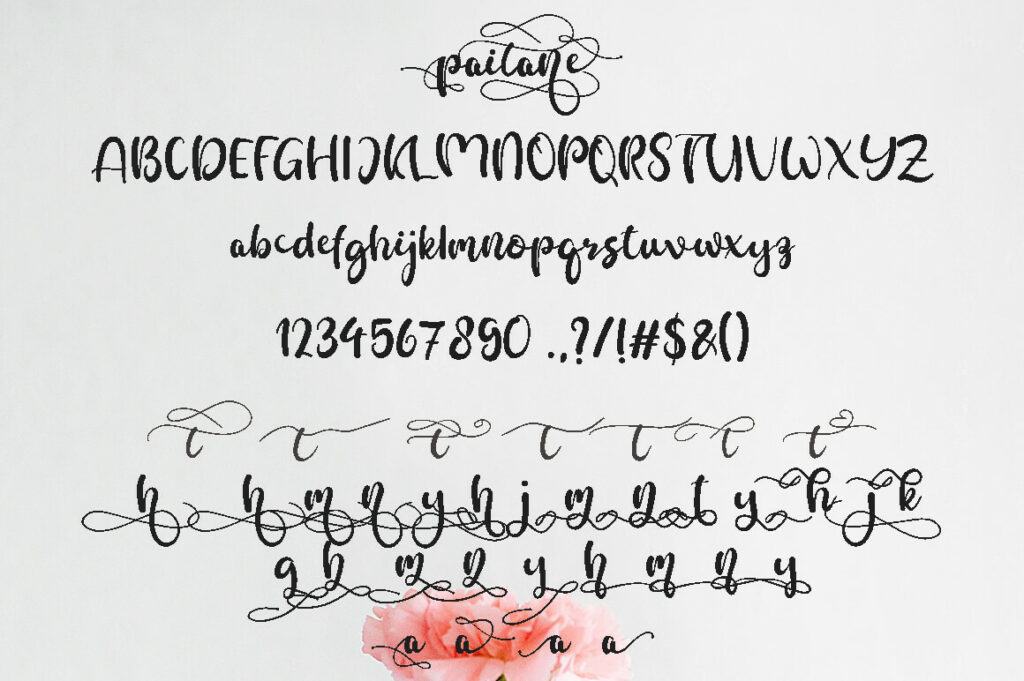 paitane
ABCDEFGHIJKLMNOPQRSTUVWXYZ
abcdefghijklmnopqrstuvwxyz
1234567890 .,?/!#$&()
t t t t t t t
h h m n y h j m n t y h j k
g h m n y h m n y
a a a a